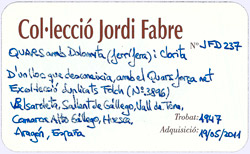 Col·lecció Jordi Fabre
QUARS amb Dolomita (ferrífera) i Clorita
Nº JFD237
D'un lloc que desconeixia, amb el Quars força net
Ex-col·lecció duplicats Folch (Nº 3896)
Sallent de Gállego, Vall de Tena,
Comarca Alto Gállego, Huesca,
Aragón, España
Trobat: 1947
Adquisició: 19/05/2011